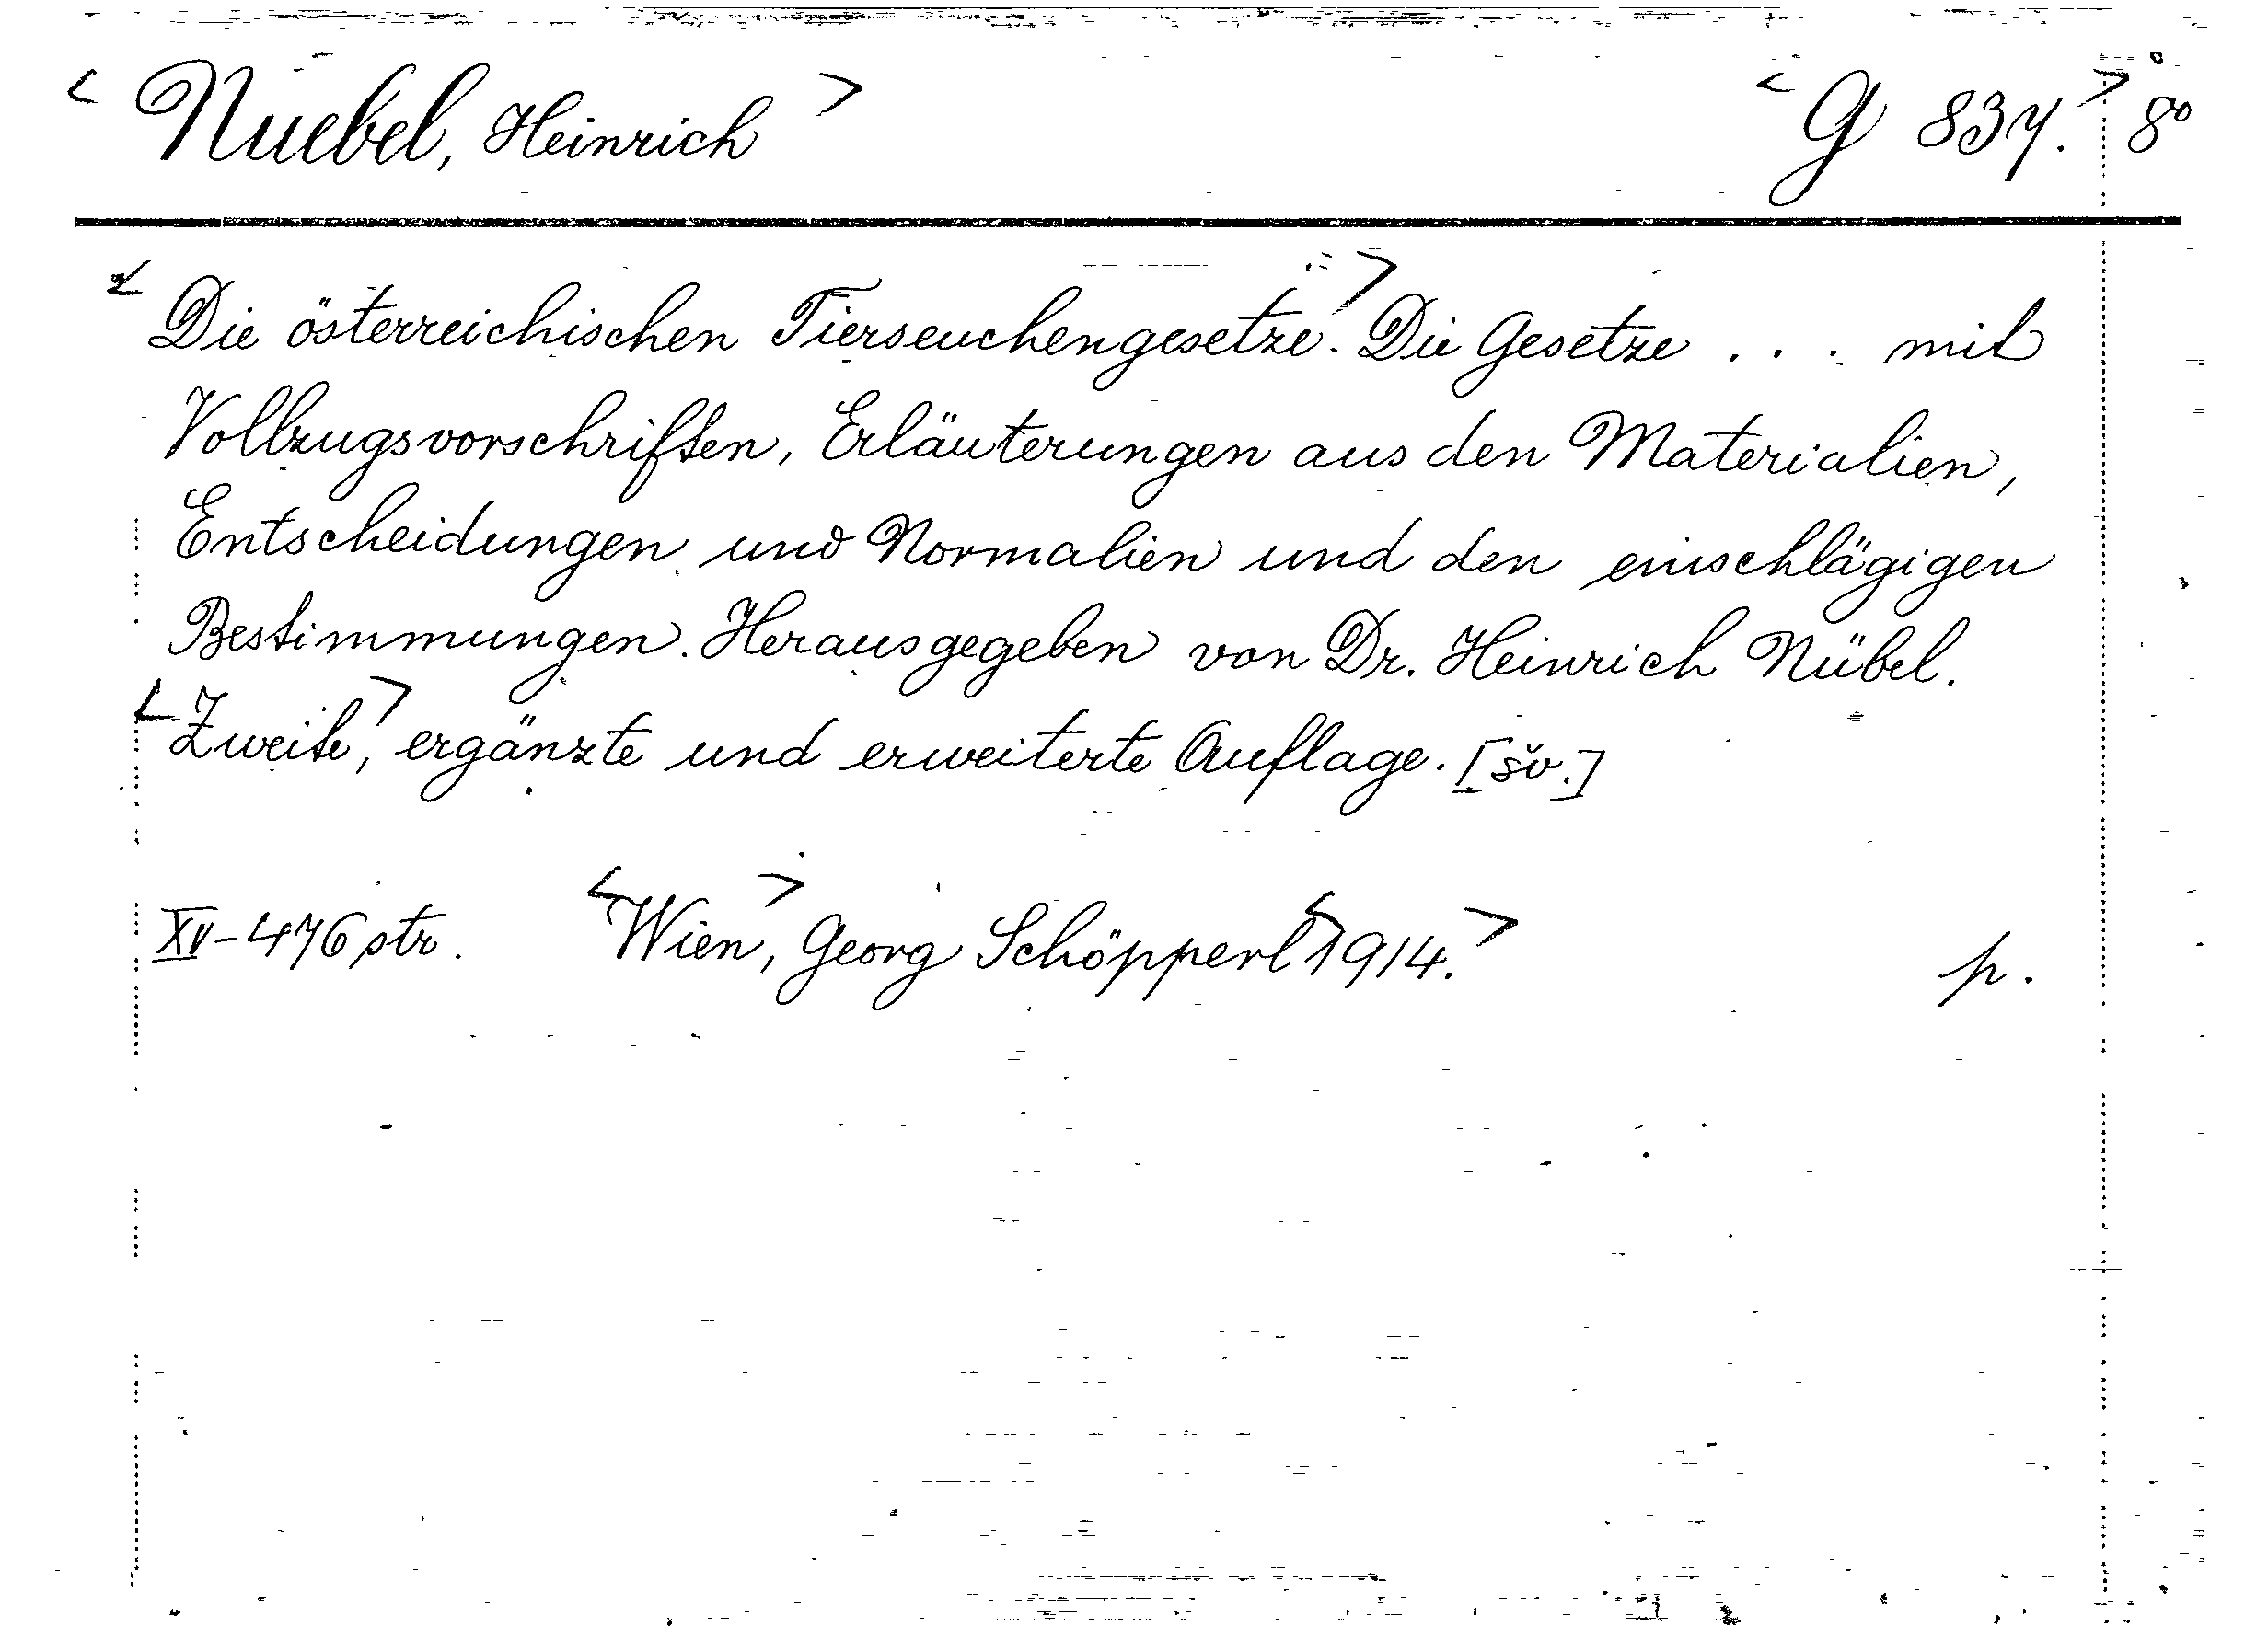 < Nuebel, Heinrich > < G 837. > 8°
< Die österreichischen Tierseuchengesetze. > Die Gesetze . . . mit
Vollzugsvorschriften, Erläuterungen aus den Materialien,
Entscheidungen und Normalien und den einschlägigen
Bestimmungen. Herausgegeben von Dr. Heinrich Nübel.
< Zweite, > ergänzte und erweiterte Auflage. [šv.]
XV-476 str. < Wien, > Georg Schöpperl < 1914. > p.